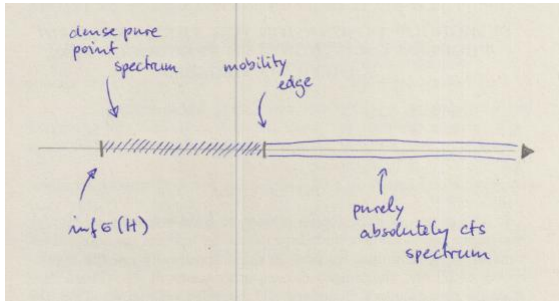 dense pure
point
spectrum
mobility
edge
inf σ(H)
purely
absolutely cts
spectrum